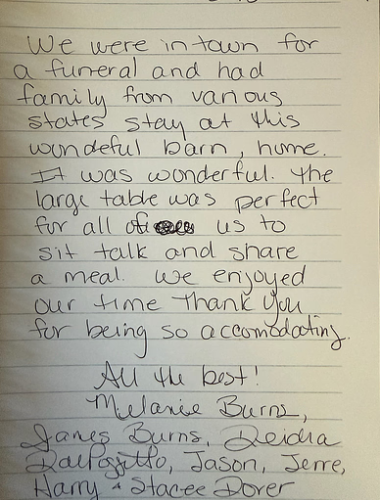 We were in town for
a funeral and had
family from various
states stay at this
wondeful barn, home.
It was wonderful. The
large table was perfect
for all of us to
sit talk and share
a meal. We enjoyed
our time Thank You
for being so accomodating.
All the best!
Melanie Burns,
James Burns, Deidra
Jason, Jerre,
Harry & Stacee Dover